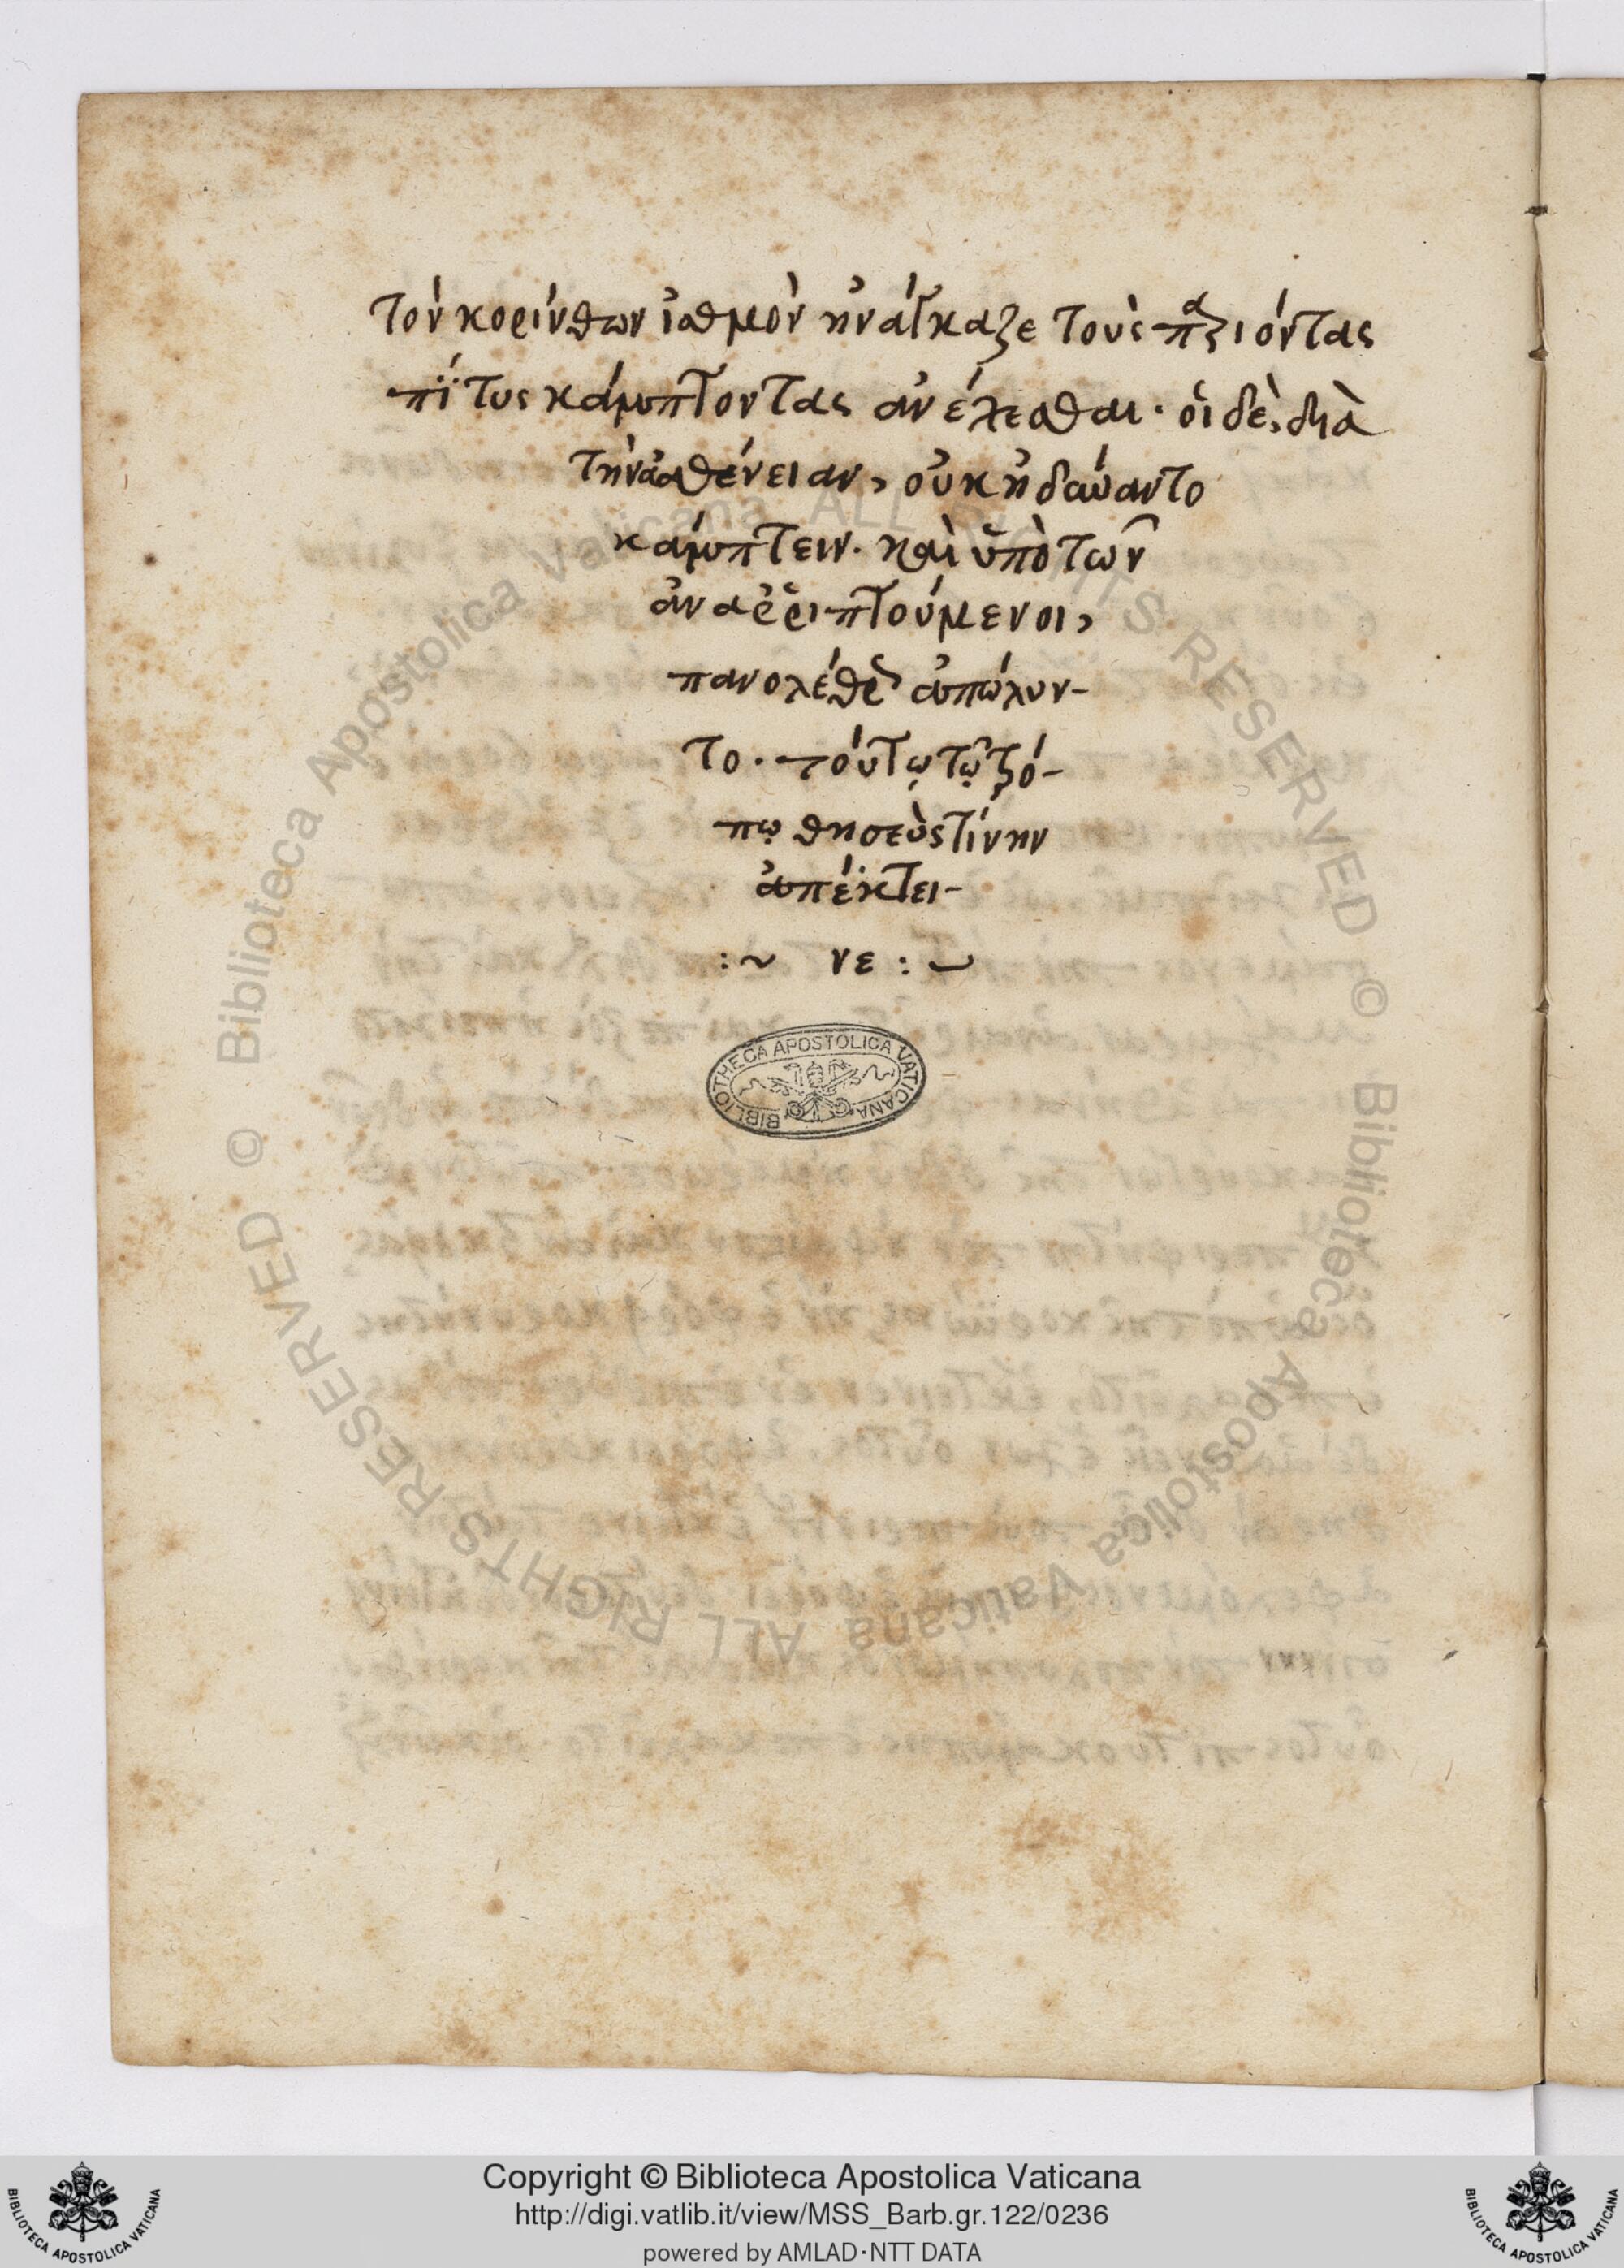 τὸν κορίνθων ἰσθμὸν ἠνάγκαζε τοὺς παριόντας
πίτυς κάμπτοντας ἀνέχεσθαι· οἱ δὲ, διὰ
τὴν ἀσθένειαν, οὐκ ἠδύναντο
κάμπτειν. καὶ ὑπὸ τῶν
ἀναῤῥιπτούμενοι,
πανολέθρ ἀπώλυν-
το. τούτῳ τῷ τρό-
πῳ θησεὺς τίνην
ἀπέκτει-
:~ νε :~
BIBLIOTHECA APOSTOLICA VATICANA
© Biblioteca Apostolica Vaticana ALL RIGHTS RESERVED
© Biblioteca Apostolica Vaticana ALL RIGHTS RESERVED
Copyright © Biblioteca Apostolica Vaticana
http://digi.vatlib.it/view/MSS_Barb.gr.122/0236
powered by AMLAD·NTT DATA
BIBLIOTECA APOSTOLICA VATICANA
BIBLIOTECA APOSTOLICA VATICANA